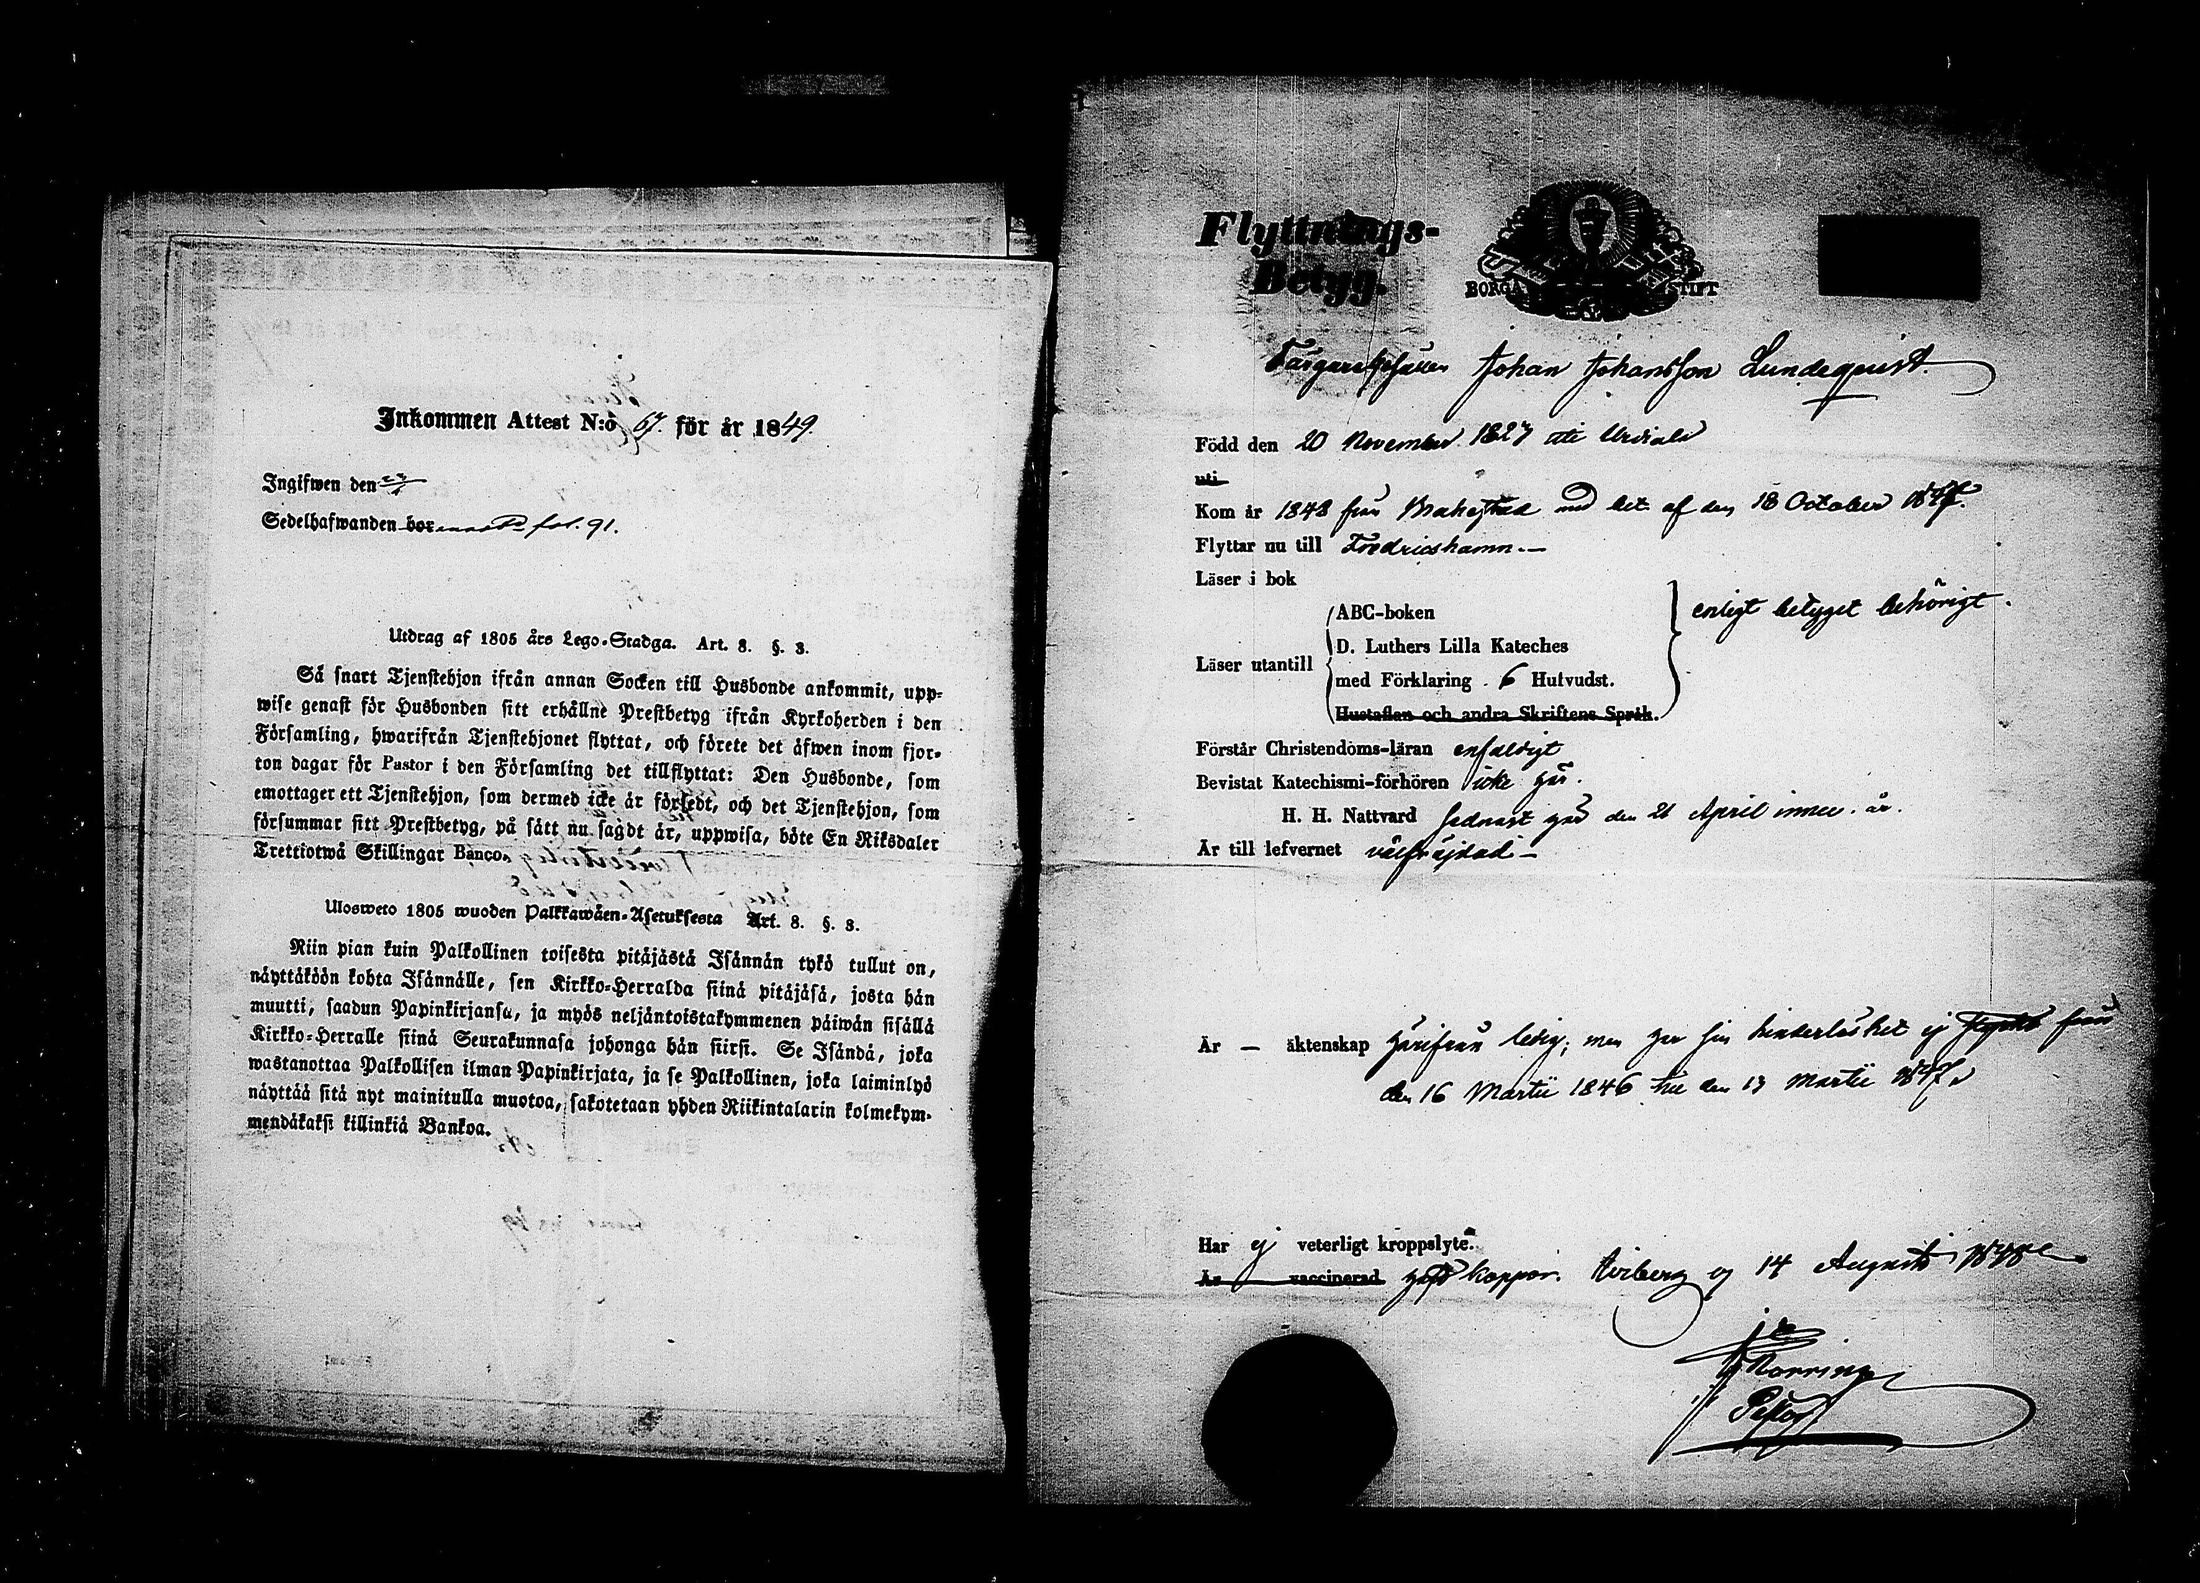 Inkommen Attest N:o 67. för år 1849.
Ingifwen den
Sedelhafwanden bor fol. 91.
Utdrag af 1805 års Lego-Stadga. Art. 8. §. 3.
Så snart Tjenstehjon ifrån annan Socken till Husbonde ankommit, upp-
wise genast för Husbonden sitt erhållne Prestbetyg ifrån Kyrkoherden i den
Församling, hwarifrån Tjenstehjonet flyttat, och förete det äfwen inom fjor-
ton dagar för Pastor i den Församling det tillflyttat: Den Husbonde, som
emottager ett Tjenstehjon, som dermed icke är försedt, och det Tjenstehjon, som
försummar sitt Prestbetyg, på sätt nu sagdt är, uppwisa, böte En Riksdaler
Trettiotwå Skillingar Banco.
Ulosweto 1805 wuoden Palkkawäen-Asetuksesta Art. 8. §. 3.
Niin pian kuin Palkollinen toisesta pitäjästä Isännän tykö tullut on,
näyttäköön kohta Isännälle, sen Kirkko-Herralda siinä pitäjäsä, josta hän
muutti, saadun Papinkirjansa, ja myös neljäntoistakymmenen päiwän sisällä
Kirkko-Herralle siinä Seurakunnasa johonga hän siirsi. Se Isändä, joka
wastanottaa Palkollisen ilman Papinkirjata, ja se Palkollinen, joka laiminlyö
näyttää sitä nyt mainitulla muotoa, sakotetaan yhden Riikintalarin kolmekym-
mendäkaksi killinkiä Bankoa.
Flyttnings-
Betyg.
BORGÅ STIFT
Johan Johansson Lundeqvist.
Född den 20 November 1827 uti Urdiala
uti
Kom år 1848 från med bet. af den 18 October 1847.
Flyttar nu till Fredricshamn.—
Läser i bok
Läser utantill
ABC-boken
D. Luthers Lilla Kateches
med Förklaring 6 Hufvudst.
Hustaflan och andra Skriftens Språk.
enligt betyget behörigt.
Förstår Christendoms-läran enfaldigt
Bevistat Katechismi-förhören icke här.
H. H. Nattvard sednast här den 21 April innev. år.
Är till lefvernet välfräjdad—
Är — äktenskap härifrån ledig; men har sin hinderlöshet ej styrkt från
den 16 Martii 1846 till den 13 Martii 1847.
Har ej veterligt kroppslyte.
Är vaccinerad haft koppor. Wiborg d 14 Augusti 1848